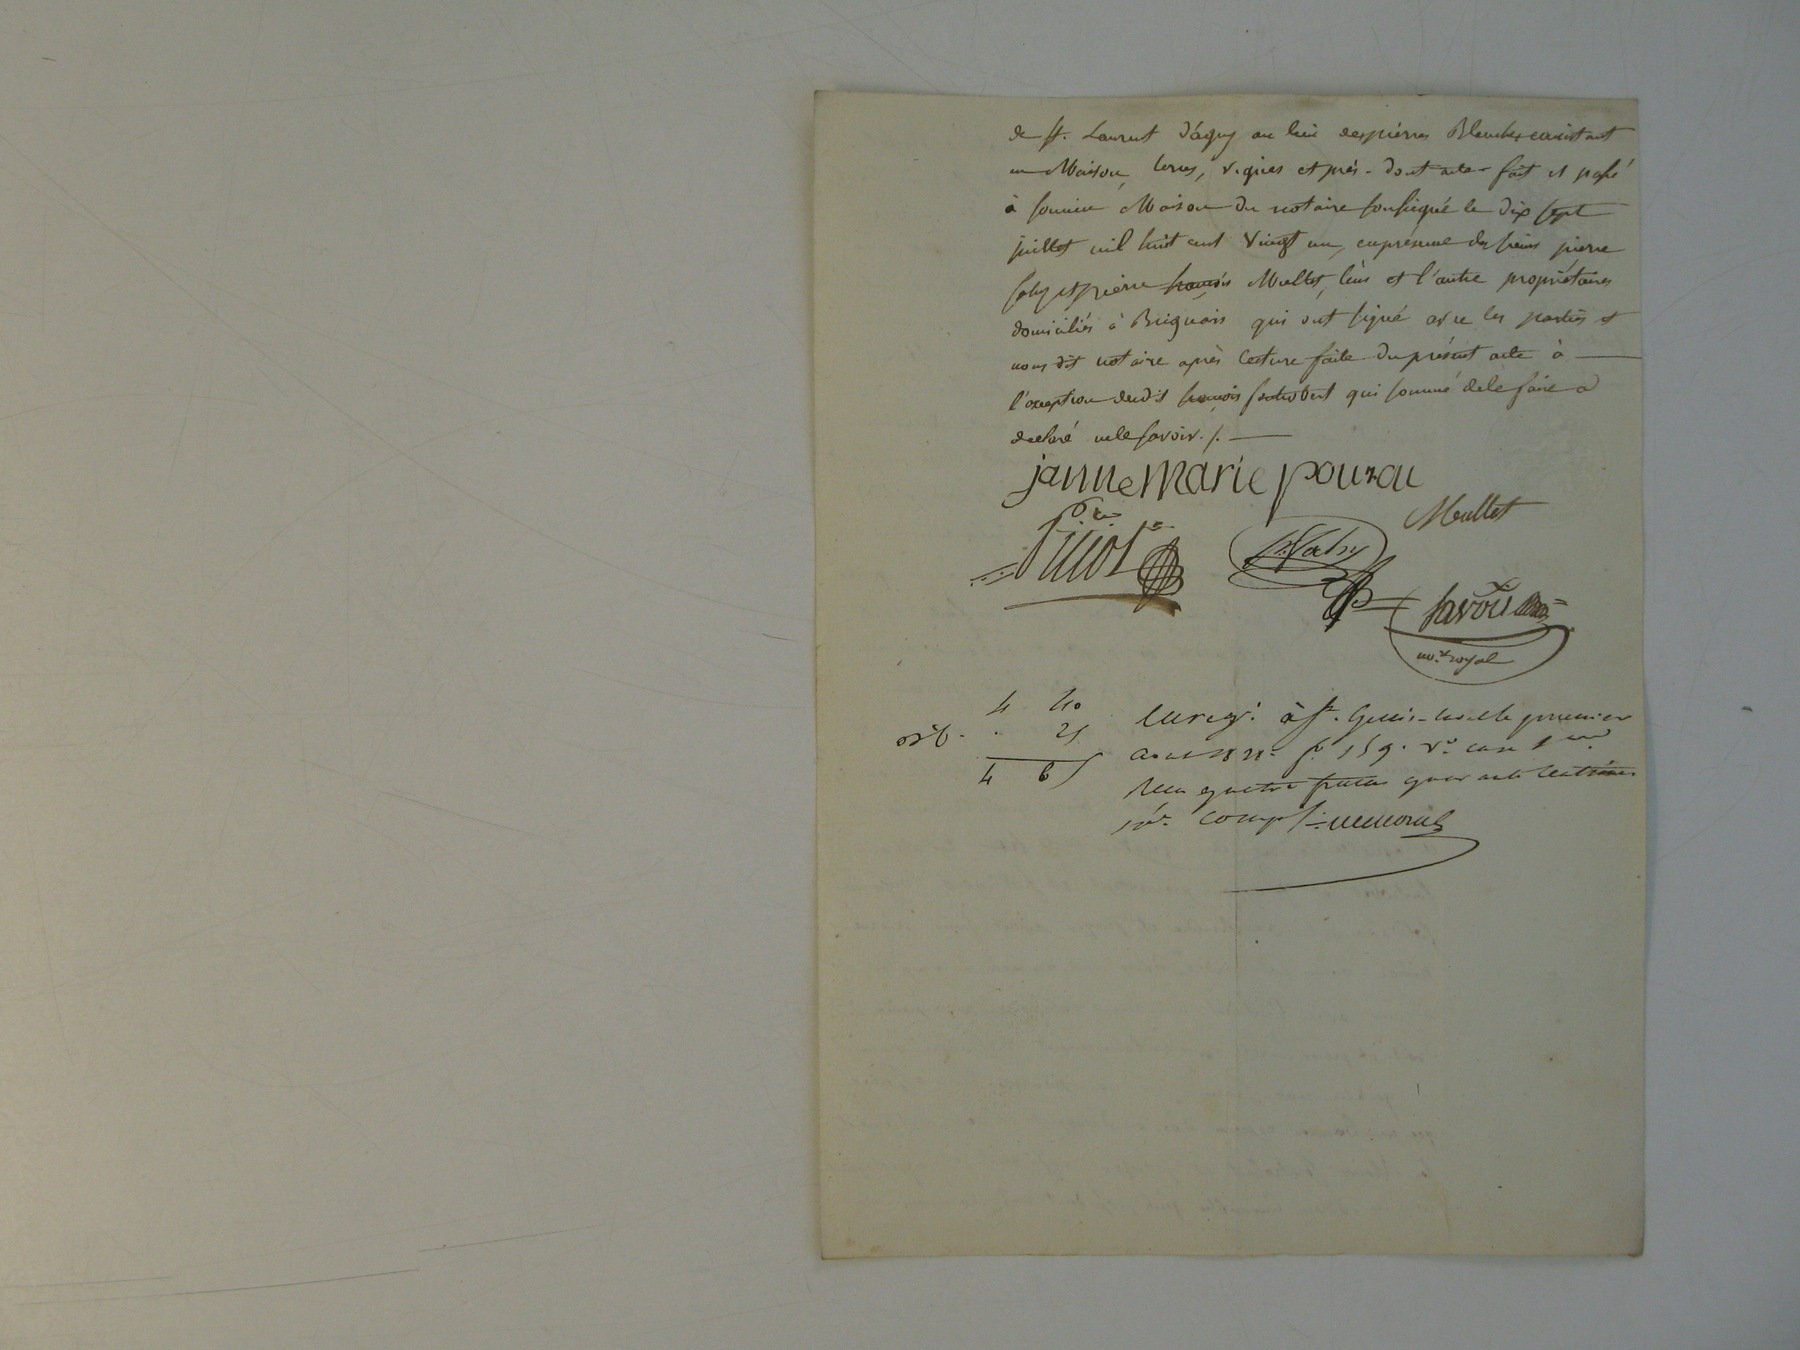 de St. Laurent d'agny au lieu des pierres Blanches consistant
en Maison, terres, vignes et près. dont acte fait et passé
à Maison du notaire soussigné le dix sept
juillet mil huit cent vingt un, en présence des sieurs pierre
et pierre françois Mullet, l'un et l'autre propriétaires
domiciliés à Brignais qui ont signé avec les parties et
nous dit notaire après lecture faite du présent acte à
l'exception dudit françois qui sommé de le faire a
declaré ne le savoir ./.
janne marie pouzou
Mullet
not. royal
4 40
25
4 65
Enreg. à St. Genis-laval le premier
aout 1821 f. 159. v.º case 1
Reçu quatre francs quarante centimes